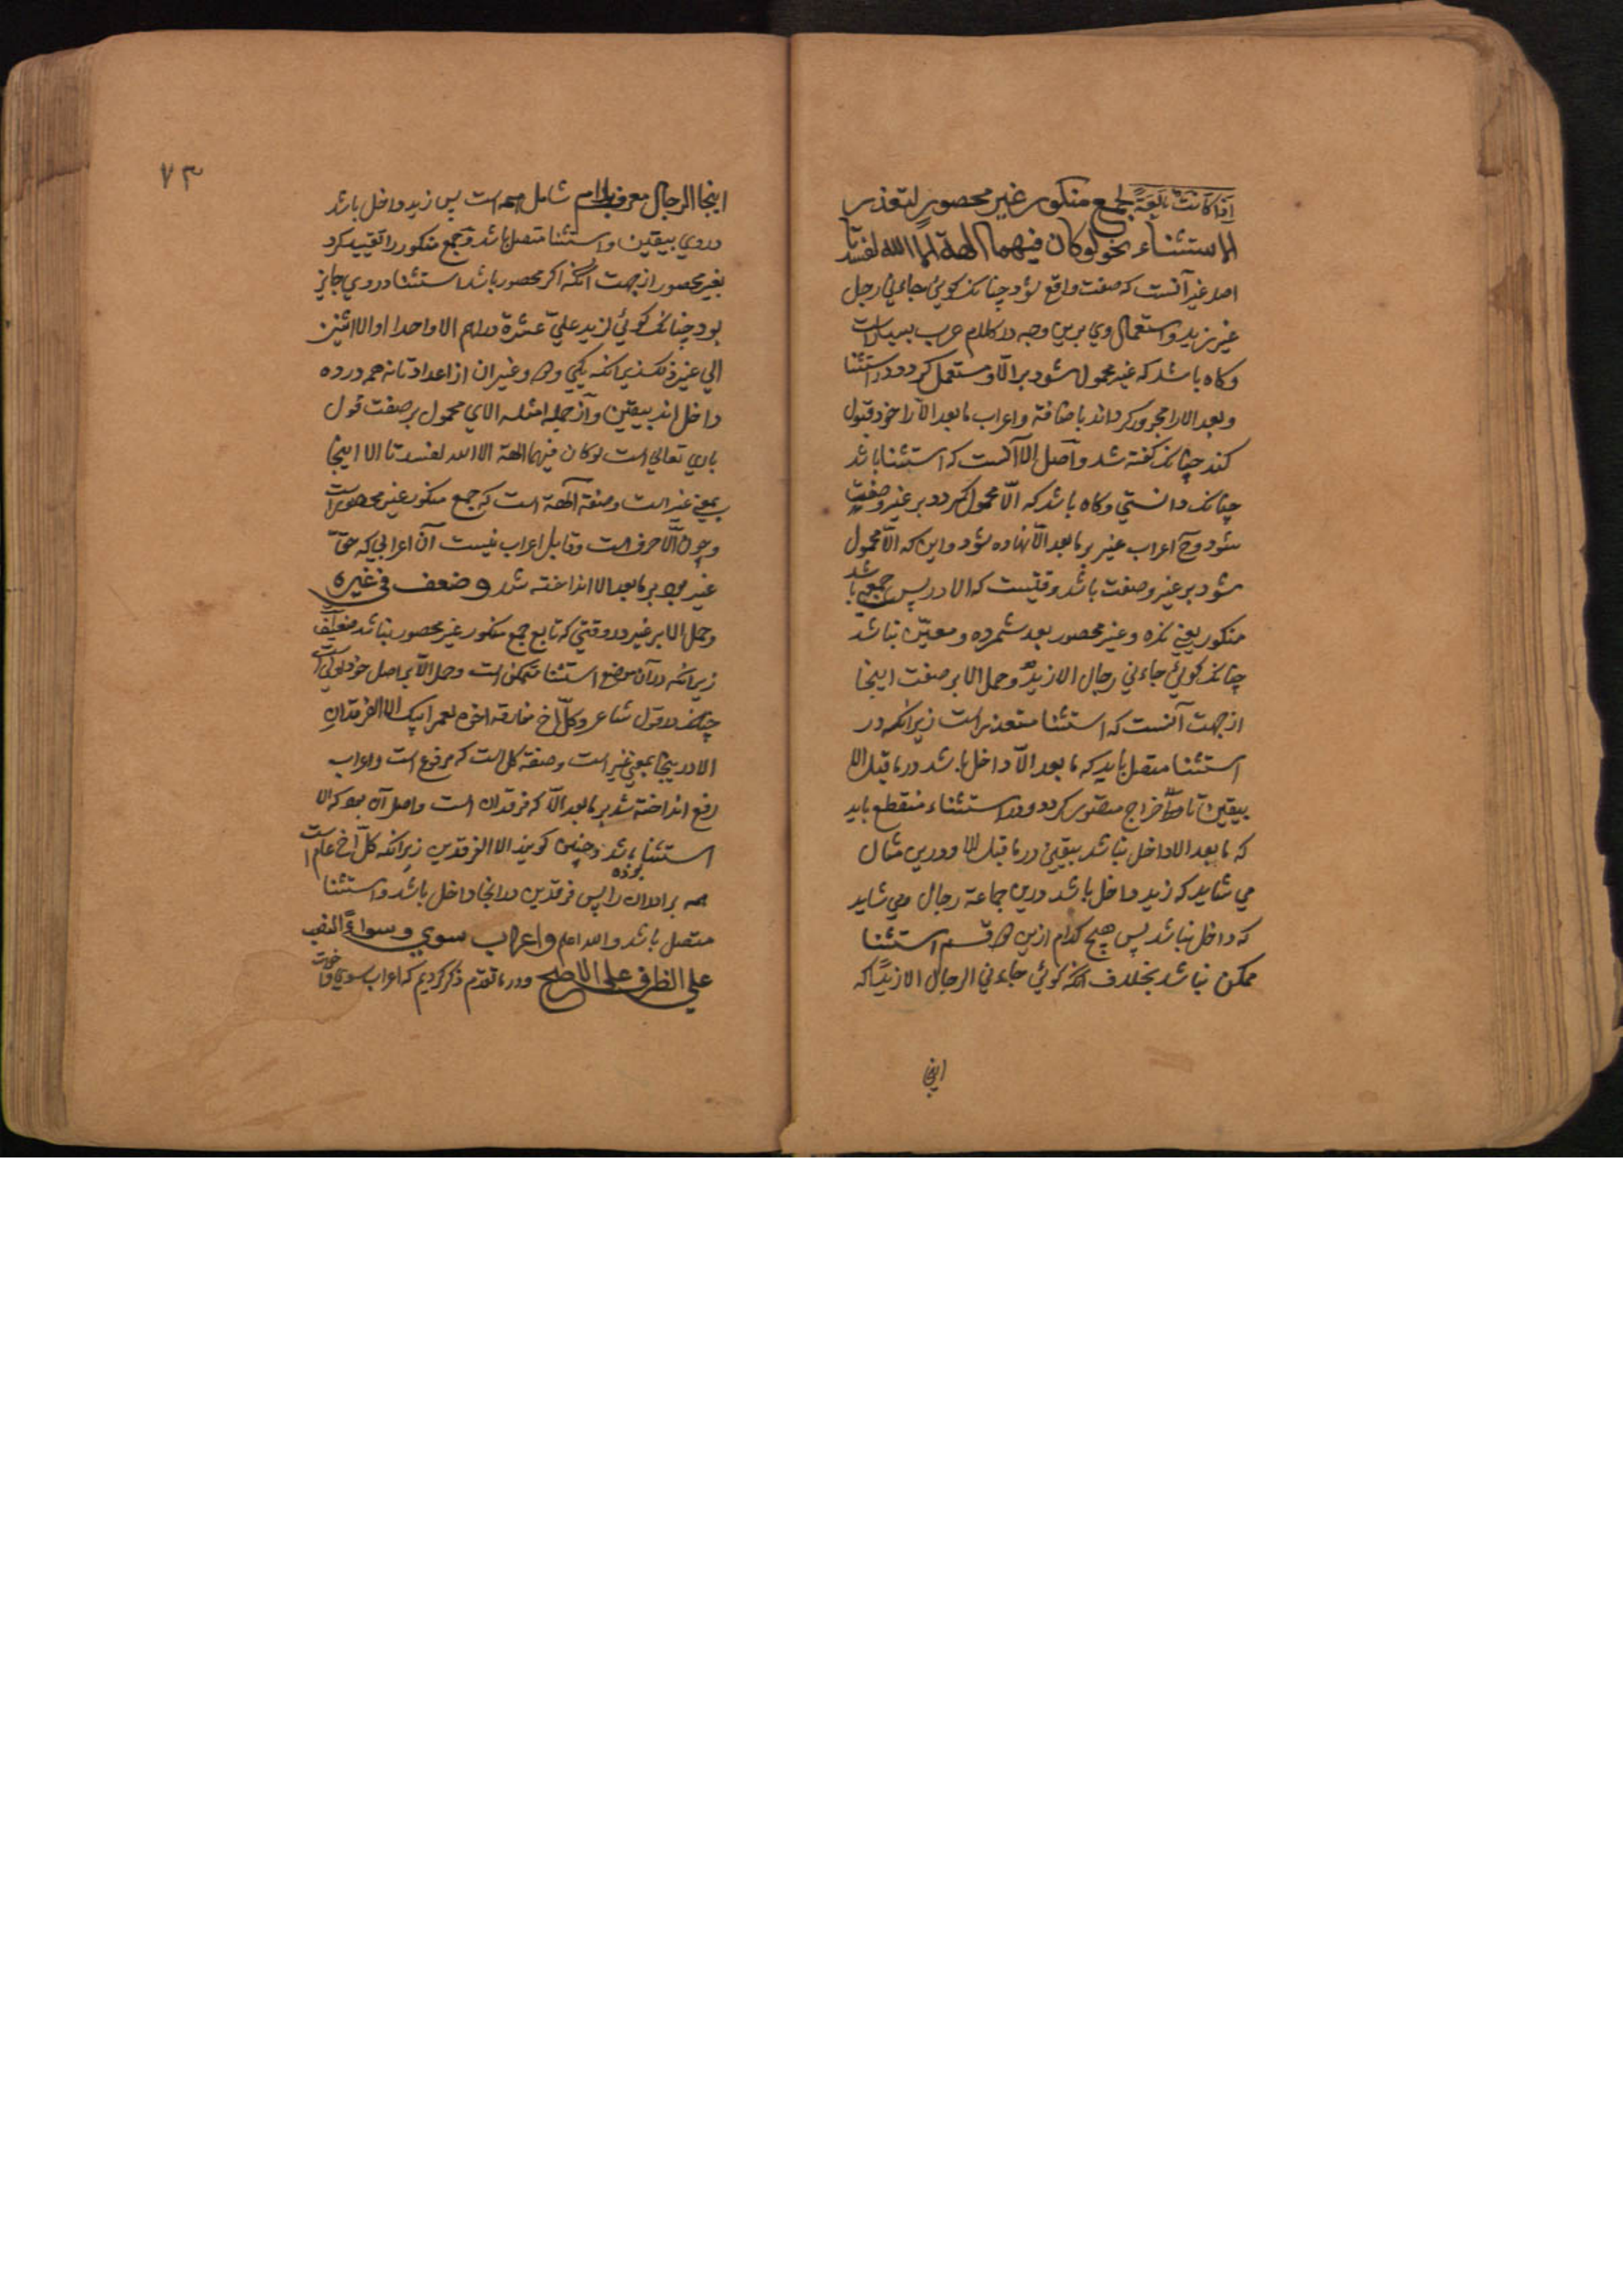 اذا کانت تابعة لجمع منکور غیر محصور لتعذر
الاستثناء نحو لوکان فیهما الهة الا الله لفسدتا
اصل غیر آنست که صفت واقع شود چنانک کوئی جاءنی رجل
غیر زید و استعمال وی برین وجه در کلام عرب بسیارست
وکاه باشد که غیر محمول شود بر الّا و مستعمل کردد در استثنا
و بعد الا را مجرور کرداند باضافة و اعراب ما بعد الّا را خود قبول
کند چنانک کفته شد و اصل الا آنست که استثنا باشد
چنانک دانستی وکاه باشد که الّا محمول کردد بر غیر و صفت
شود وح اعراب غیر بر ما بعد الّا نهاده شود و این که الّا محمول
شود بر غیر و صفت باشد وقتیست که الا در پس جمعی باشد
منکور یعنی نکره و غیر محصور بعد شمرده و معیّن نباشد
چنانک کوئی جاءنی رجال الا زیدٌ و حمل الا بر صفت اینجا
از جهت آنست که استثنا متعذر است زیرانکه در
استثنا متصل باید که ما بعد الّا داخل باشد در ما قبل الا
بیقین تا اخراج متصور کردد و در استثناء منقطع باید
که ما بعد الا داخل نباشد بیقین در ما قبل الا و درین مثال
می شاید که زید داخل باشد درین جماعة رجال و می شاید
که داخل نباشد پس هیچ کدام ازین دو قسم استثنا
ممکن نباشد بخلاف آنکه کوئی جاءنی الرجال الا زیدًا که
اینجا
۷۳
اینجا الرجال معرف بلام شامل همه است پس زید داخل باشد
در وی بیقین و استثنا متصل باشد و جمع منکور را تقیید کرد
بغیر محصور از جهت آنکه اکر محصور باشد استثنا در وی جایز
بود چنانک کوئی لزید علیّ عشرة دراهم الا واحدا او الا اثنین
الی غیر ذلک زیرانکه یکی و دو و غیر ان از اعداد تا نه همه در ده
داخل اند بیقین و از جمله امثله الای محمول بر صفت قول
باری تعالی است لوکان فیهما الهة الا الله لفسدتا الا اینجا
بمعنی غیر است و صفة آلهة است که جمع منکور غیر محصور است
و چون الّا حرف است و قابل اعراب نیست آن اعرابی که حقّ
غیر بود بر ما بعد الا انداخته شد و ضعف فی غیره
و حمل الا بر غیر در وقتی که تابع جمع منکور غیر محصور نباشد ضعیف
زیرانکه در آن موضع استثنا متمکن است و حمل الّا بر اصل خود اولی است
چنانک در قول شاعر و کلّ اخ مفارقه اخوه لعمر ابیک الا الفرقدانِ
الا درینجا بمعنی غیر است و صفة کل است که مرفوع است و اعراب
رفع انداخته شد بر ما بعد الّا که فرقدان است و اصل آن بود که الا
استثناء باشد و چنین کویند الا الفرقدین زیرانکه کلّ اخ عام است
همه برادران را پس فرقدین در انجا داخل بوده باشد و استثنا
متصل باشد و الله اعلم و اعراب سوی و سواء النصب
علی الظرف علی الاصح و در ما تقدم ذکر کردیم که اعراب سوی